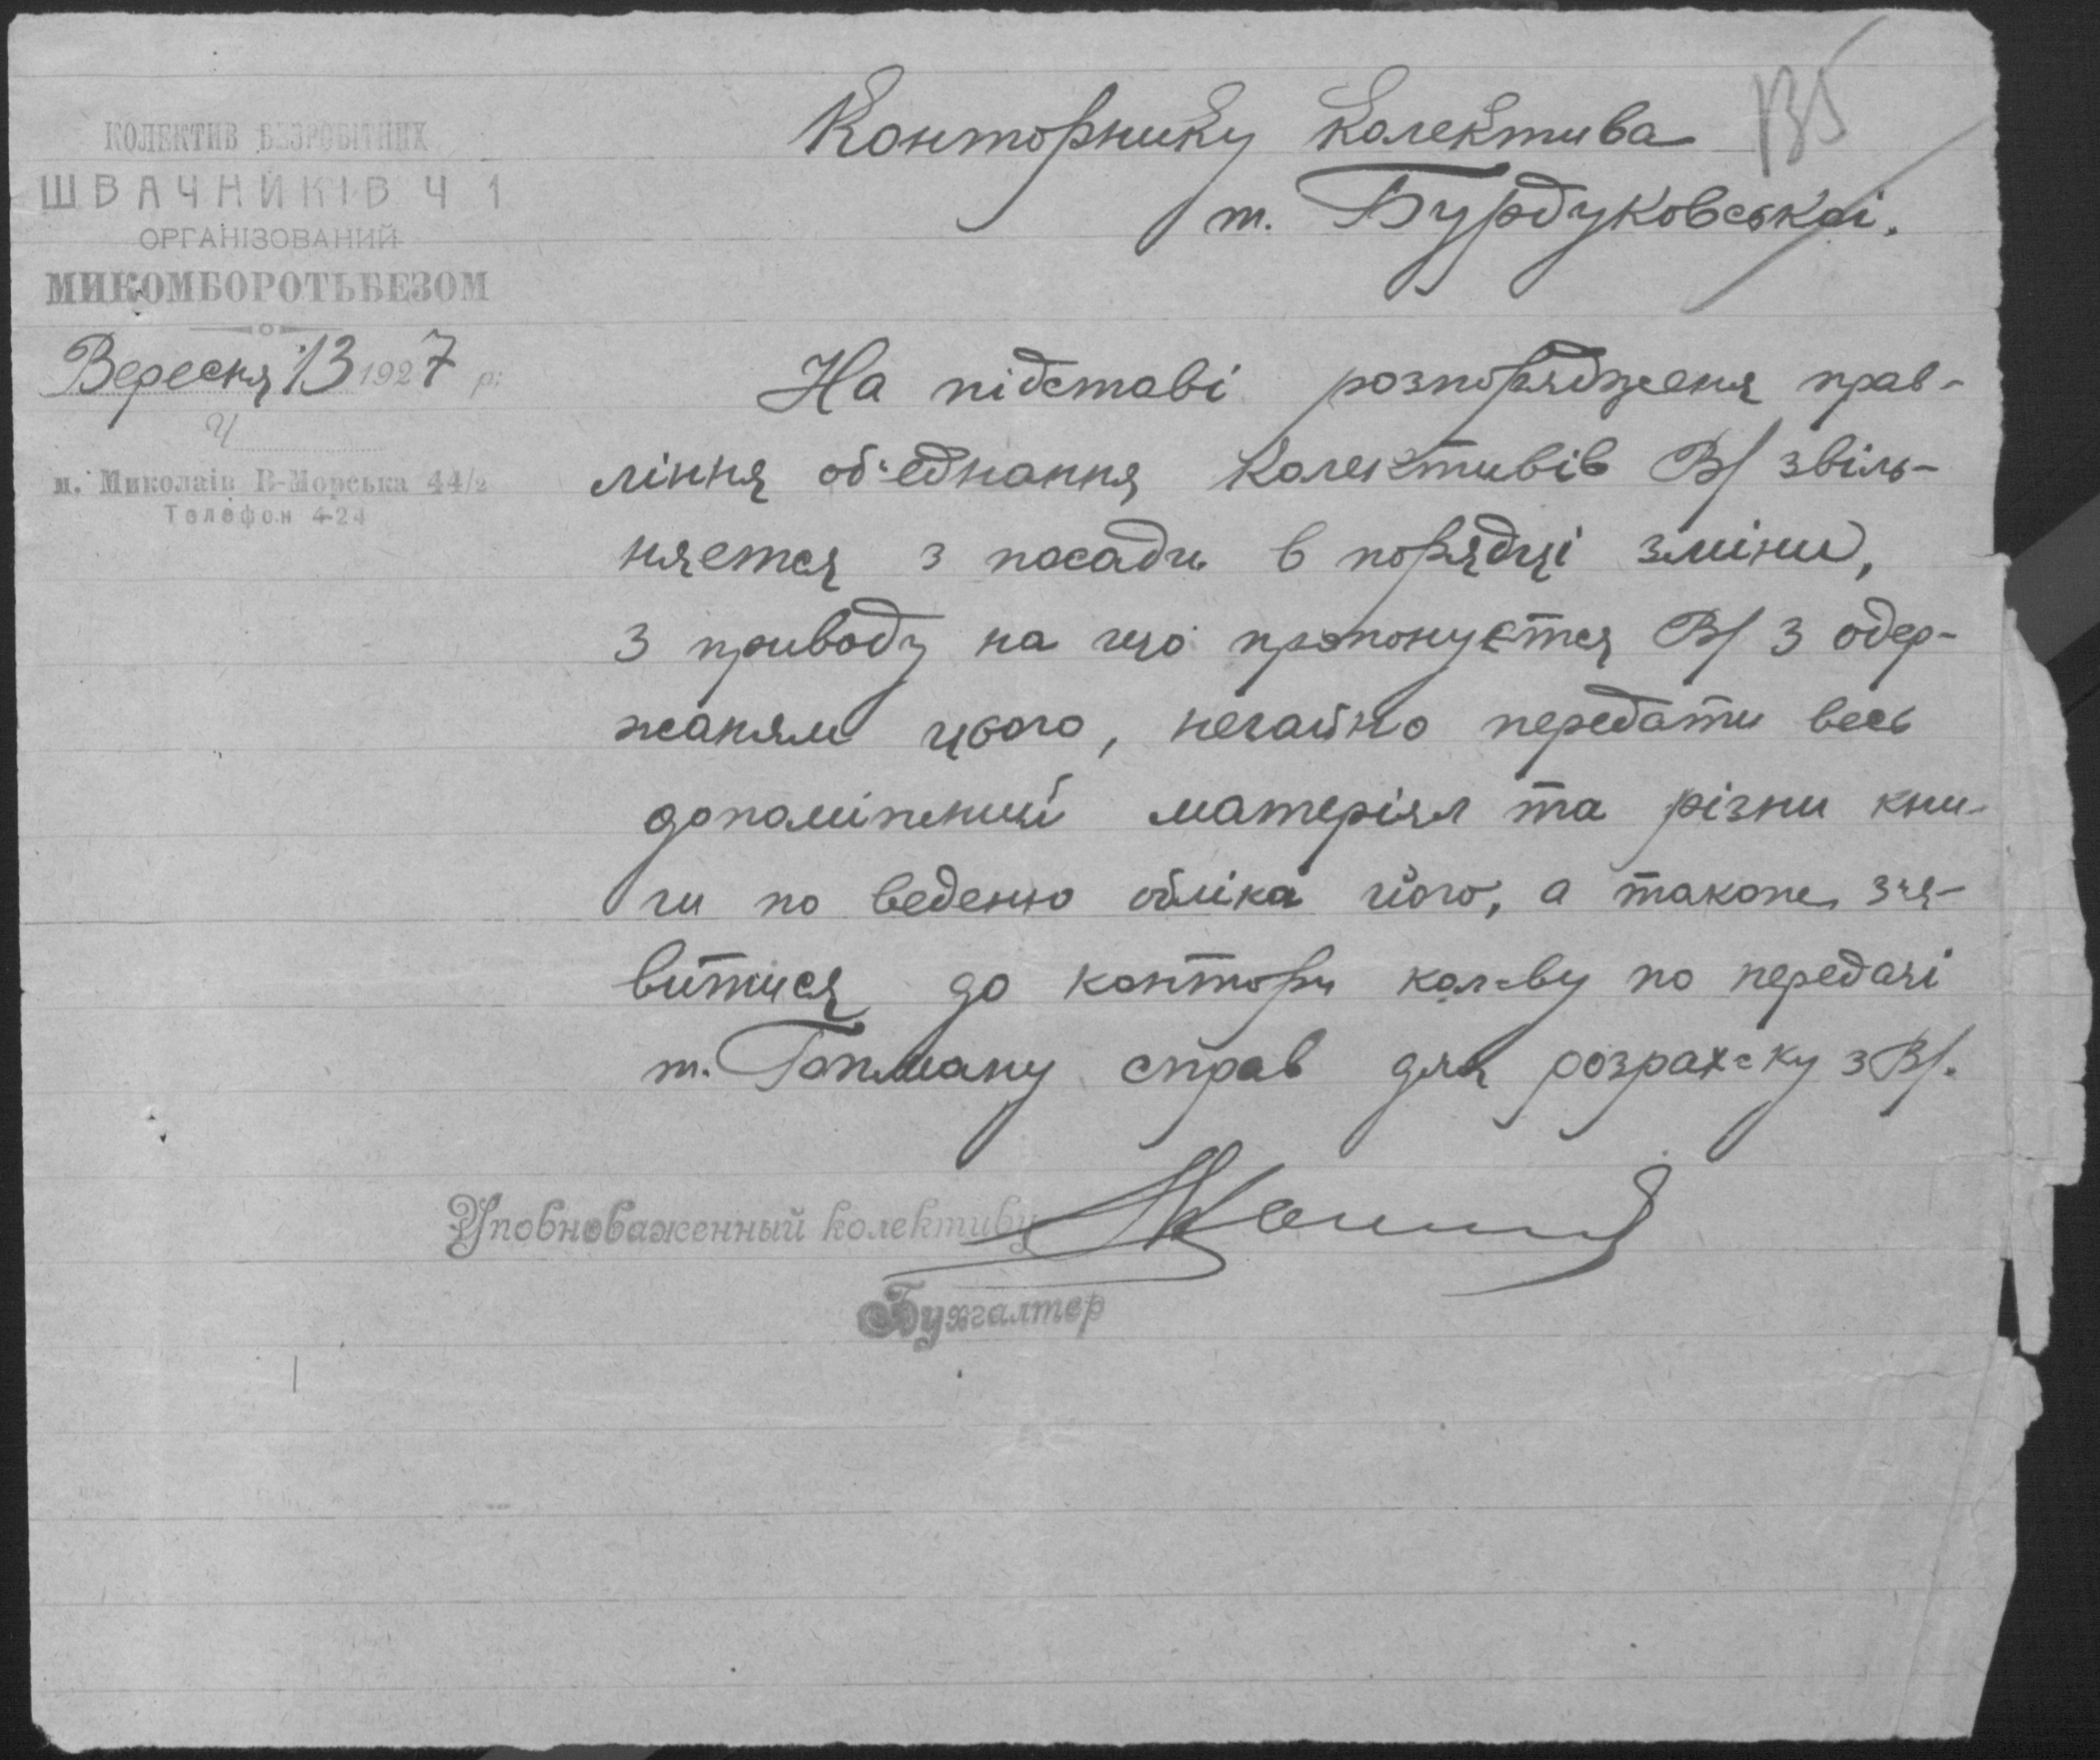 135
КОЛЕКТИВ БЕЗРОБІТНИХ
ШВАЧНИКІВ Ч 1
ОРГАНІЗОВАНИЙ
МИКОМБОРОТЬБЕЗОМ
Вересня 13 1927 р.
Ч
м. Миколаїв В-Морська 44/2
Телефон 4-24
Конторнику колектива
т. Бурдуковської.
На підставі розпорядженя прав-
ління об'єднання колективів В/ звіль-
няется з посади в порядці зміни,
з приводу на що пропонується В/ з одер-
жаням цього, негайно передати весь
допоміжний матеріял та різни кни-
ги по веденю обліка його, а також з'я-
витися до контори кол-ву по передачі
т. справ для розрах-ку з В/.
Уповноваженный колективу
Бухгалтер